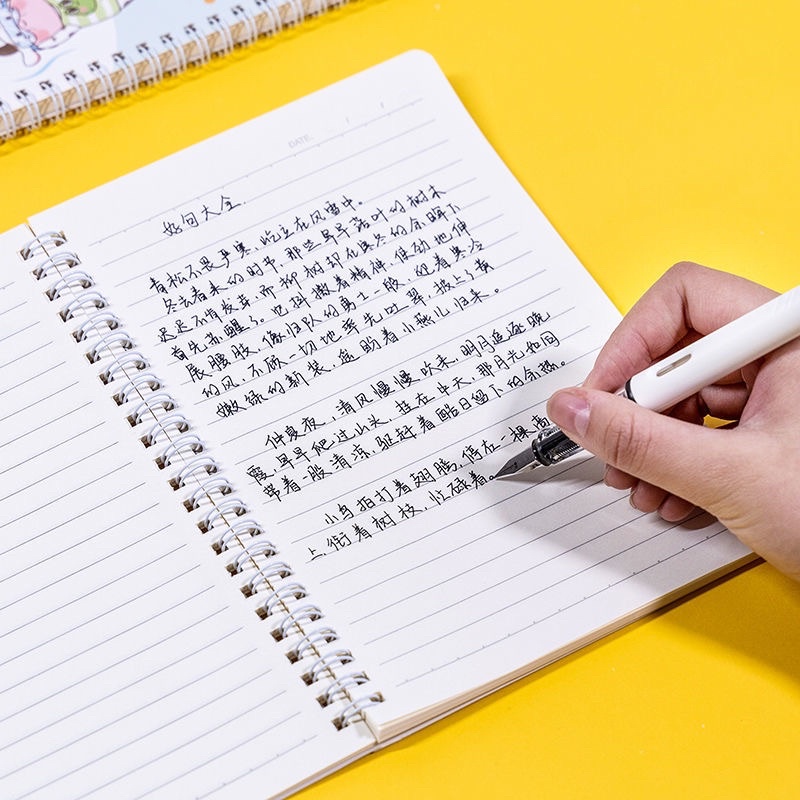 DATE.
好句大全.
青松不畏严寒,屹立在风雪中。
冬去春来的时节,那些早早落叶的树木
迟迟不肯发芽,而柳树却在寒冬的余晖下
首先苏醒了。它抖擞着精神,使劲地伸
展腰肢,像归队的勇士一般,迎着寒冷
的风,不顾一切地率先吐翠,披上了黄
嫩绿的新装,盼着小燕儿归来。
仲夏夜,清风慢慢吹来,明月追逐晚
霞,早早爬过山头,挂在中天,那月光如同
带着一股清凉,驱赶着酷日留下的余热。
小鸟拍打着翅膀,停在一棵高
上,衔着树枝,忙碌着。